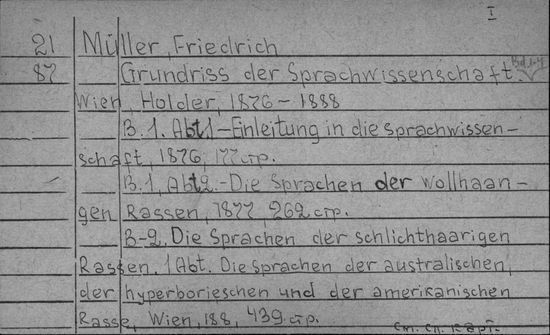 I
21 Müller, Friedrich
87 Grundriss der Sprachwissenschaft. Bd.1-4
Wien, Holder, 1876-1888
B.1. Abt1-Einleitung in die sprachwissen-
schaft, 1876, 177 стр.
B.1, Abt2.-Die Sprachen der Wollhaan-
gen Rassen, 1877, 262 стр.
B-2. Die Sprachen der schlichthaarigen
Rassen. 1 Abt. Die Sprachen der australischen,
der hyperborieschen und der amerikanischen
Rasse, Wien, 188, 439 стр.
См. сл. карт.